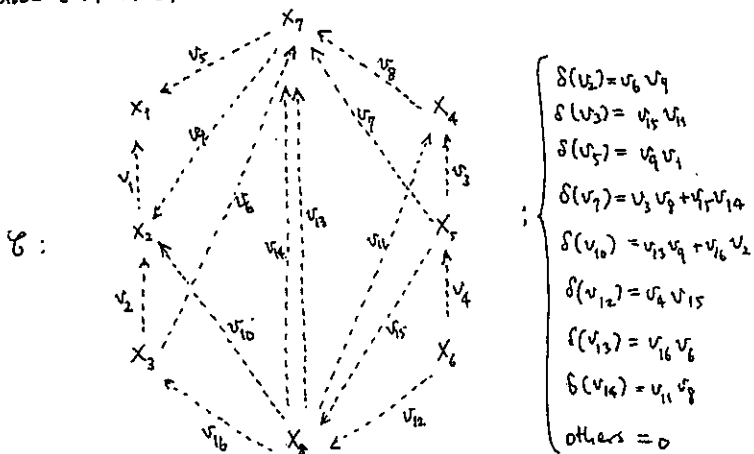 X₇
v₅
v₈
X₁
v₉
v₇
X₄
v₁
v₆
v₃
X₂
v₁₄
v₁₃
v₁₁
X₅
𝒞 :
v₂
v₁₀
v₁₅
v₄
X₃
X₆
v₁₆
v₁₂
;
δ(v₂)=v₆ v₉
δ(v₃)= v₁₅ v₁₁
δ(v₅) = v₉ v₁
δ(v₇)= v₃ v₈ + v₁₅ v₁₄
δ(v₁₀) = v₁₃ v₉ + v₁₆ v₂
δ(v₁₂) = v₄ v₁₅
δ(v₁₃) = v₁₆ v₆
δ(v₁₄) = v₁₁ v₈
others = 0